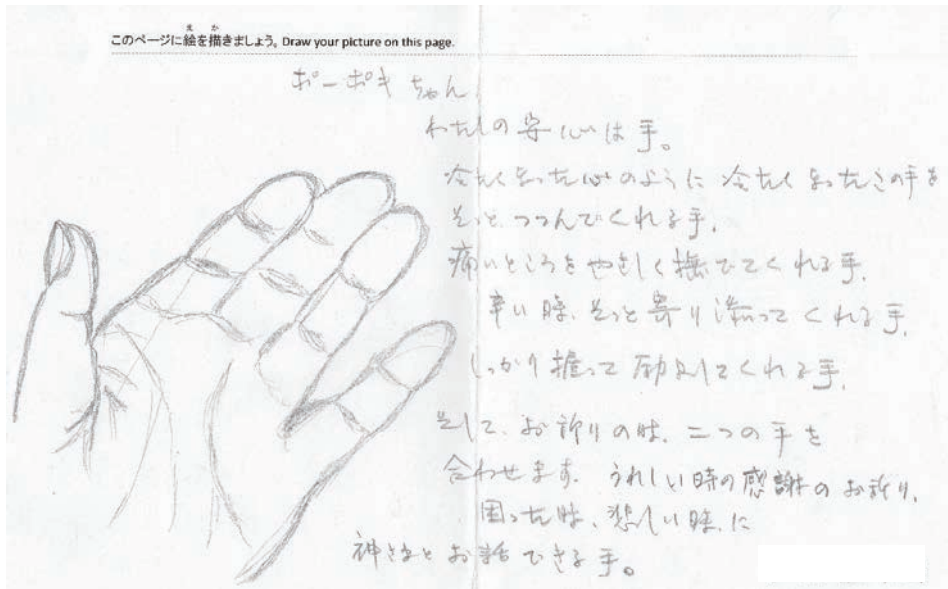 このページに絵を描きましょう。Draw your picture on this page.
ポーポキちゃん
わたしの安心は手。
冷たくなった心のように冷たくなったこの手を
そっとつつんでくれる手、
痛いところをやさしく撫でてくれる手、
辛い時、そっと寄り添ってくれる手、
しっかり握って励ましてくれる手、
そして、お祈りの時、二つの手を
合わせます。うれしい時の感謝のお祈り、
困った時、悲しい時、に
神さまとお話できる手。